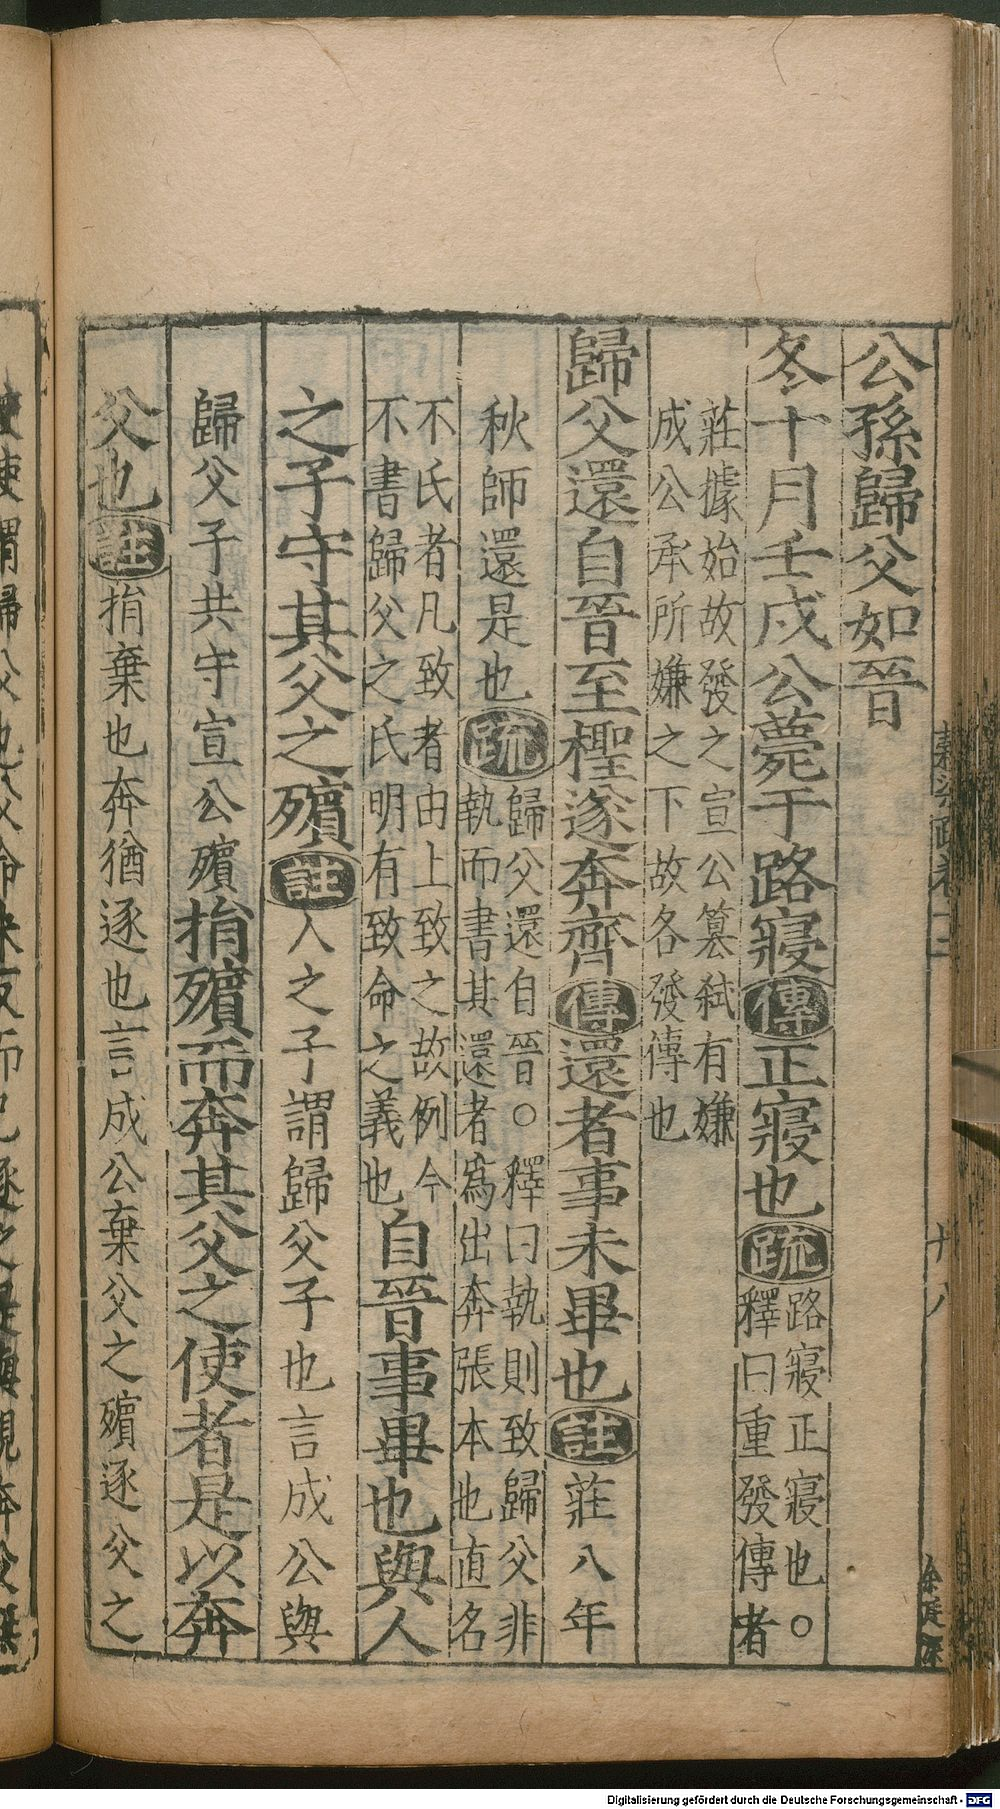 公孫歸父如晉
冬十月壬戌公薨于路寢傳正寢也疏路寢正寢也○
釋曰重發傳者
莊據始故發之宣公篡弑有嫌
成公承所嫌之下故各發傳也
歸父還自晉至檉遂奔齊傳還者事未畢也註莊八年
秋師還是也疏歸父還自晉○釋曰執則致歸父非
執而書其還者爲出奔張本也直名
不氏者凡致者由上致之故例今
不書歸父之氏明有致命之義也自晉事畢也與人
之子守其父之殯註人之子謂歸父子也言成公與
歸父子共守宣公殯捐殯而奔其父之使者是以奔
父也註捐棄也奔猶逐也言成公棄父之殯逐父之
十八
Digitalisierung gefördert durch die Deutsche Forschungsgemeinschaft - DFG